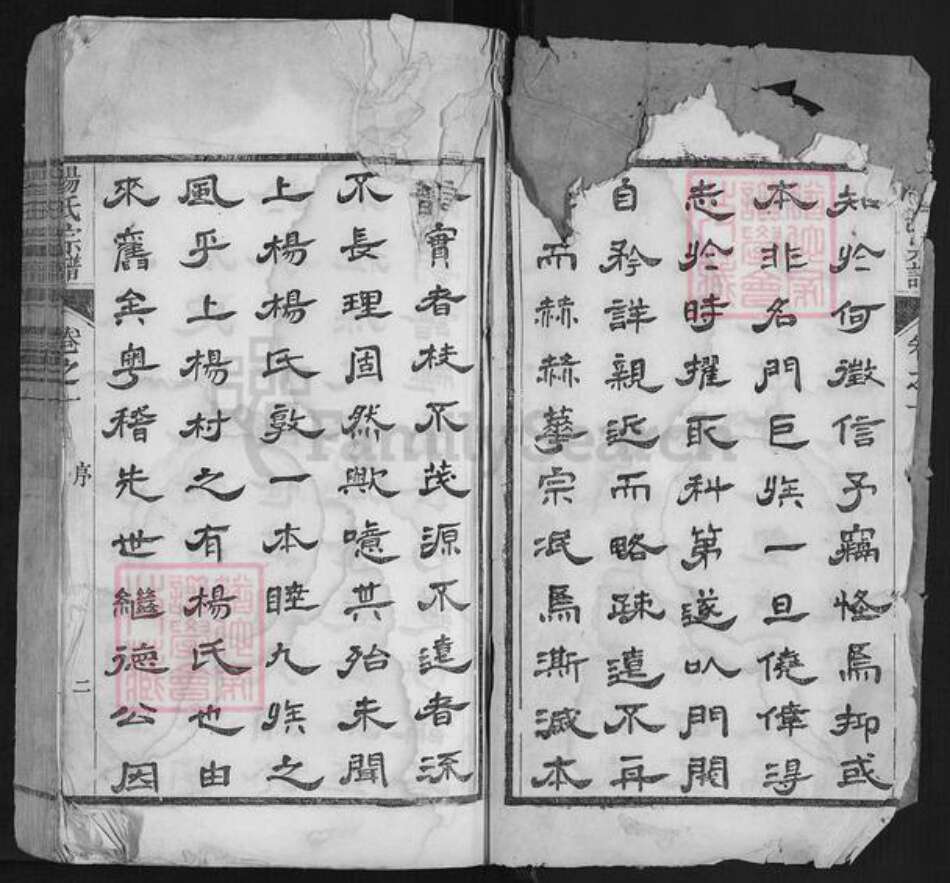 知於何徵信予竊怪焉抑或
本非名門巨族一旦僥倖得
志於時擢取科第遂以門閥
自矜詳親近而略疎遠不再
而赫赫華宗泯焉澌滅本
實者枝不茂源不遠者流
不長理固然歟噫其殆未聞
上楊楊氏敦一本睦九族之
風乎上楊村之有楊氏也由
來舊矣粵稽先世繼德公因
楊氏宗譜 卷之一 序 二
FamilySearch